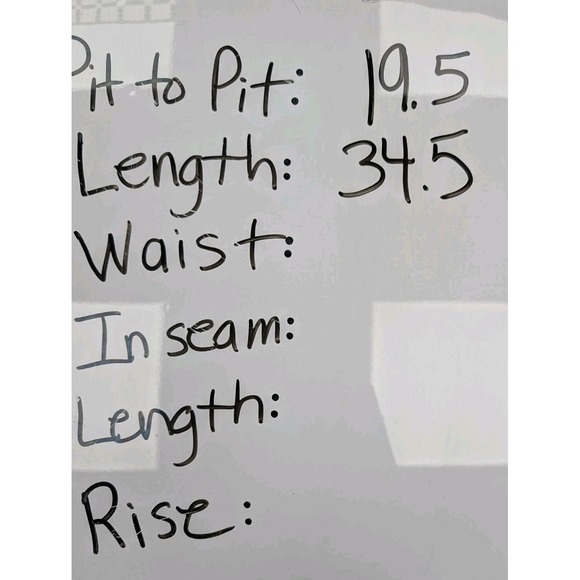 Pit to Pit: 19.5
Length: 34.5
Waist:
Inseam:
Length:
Rise: